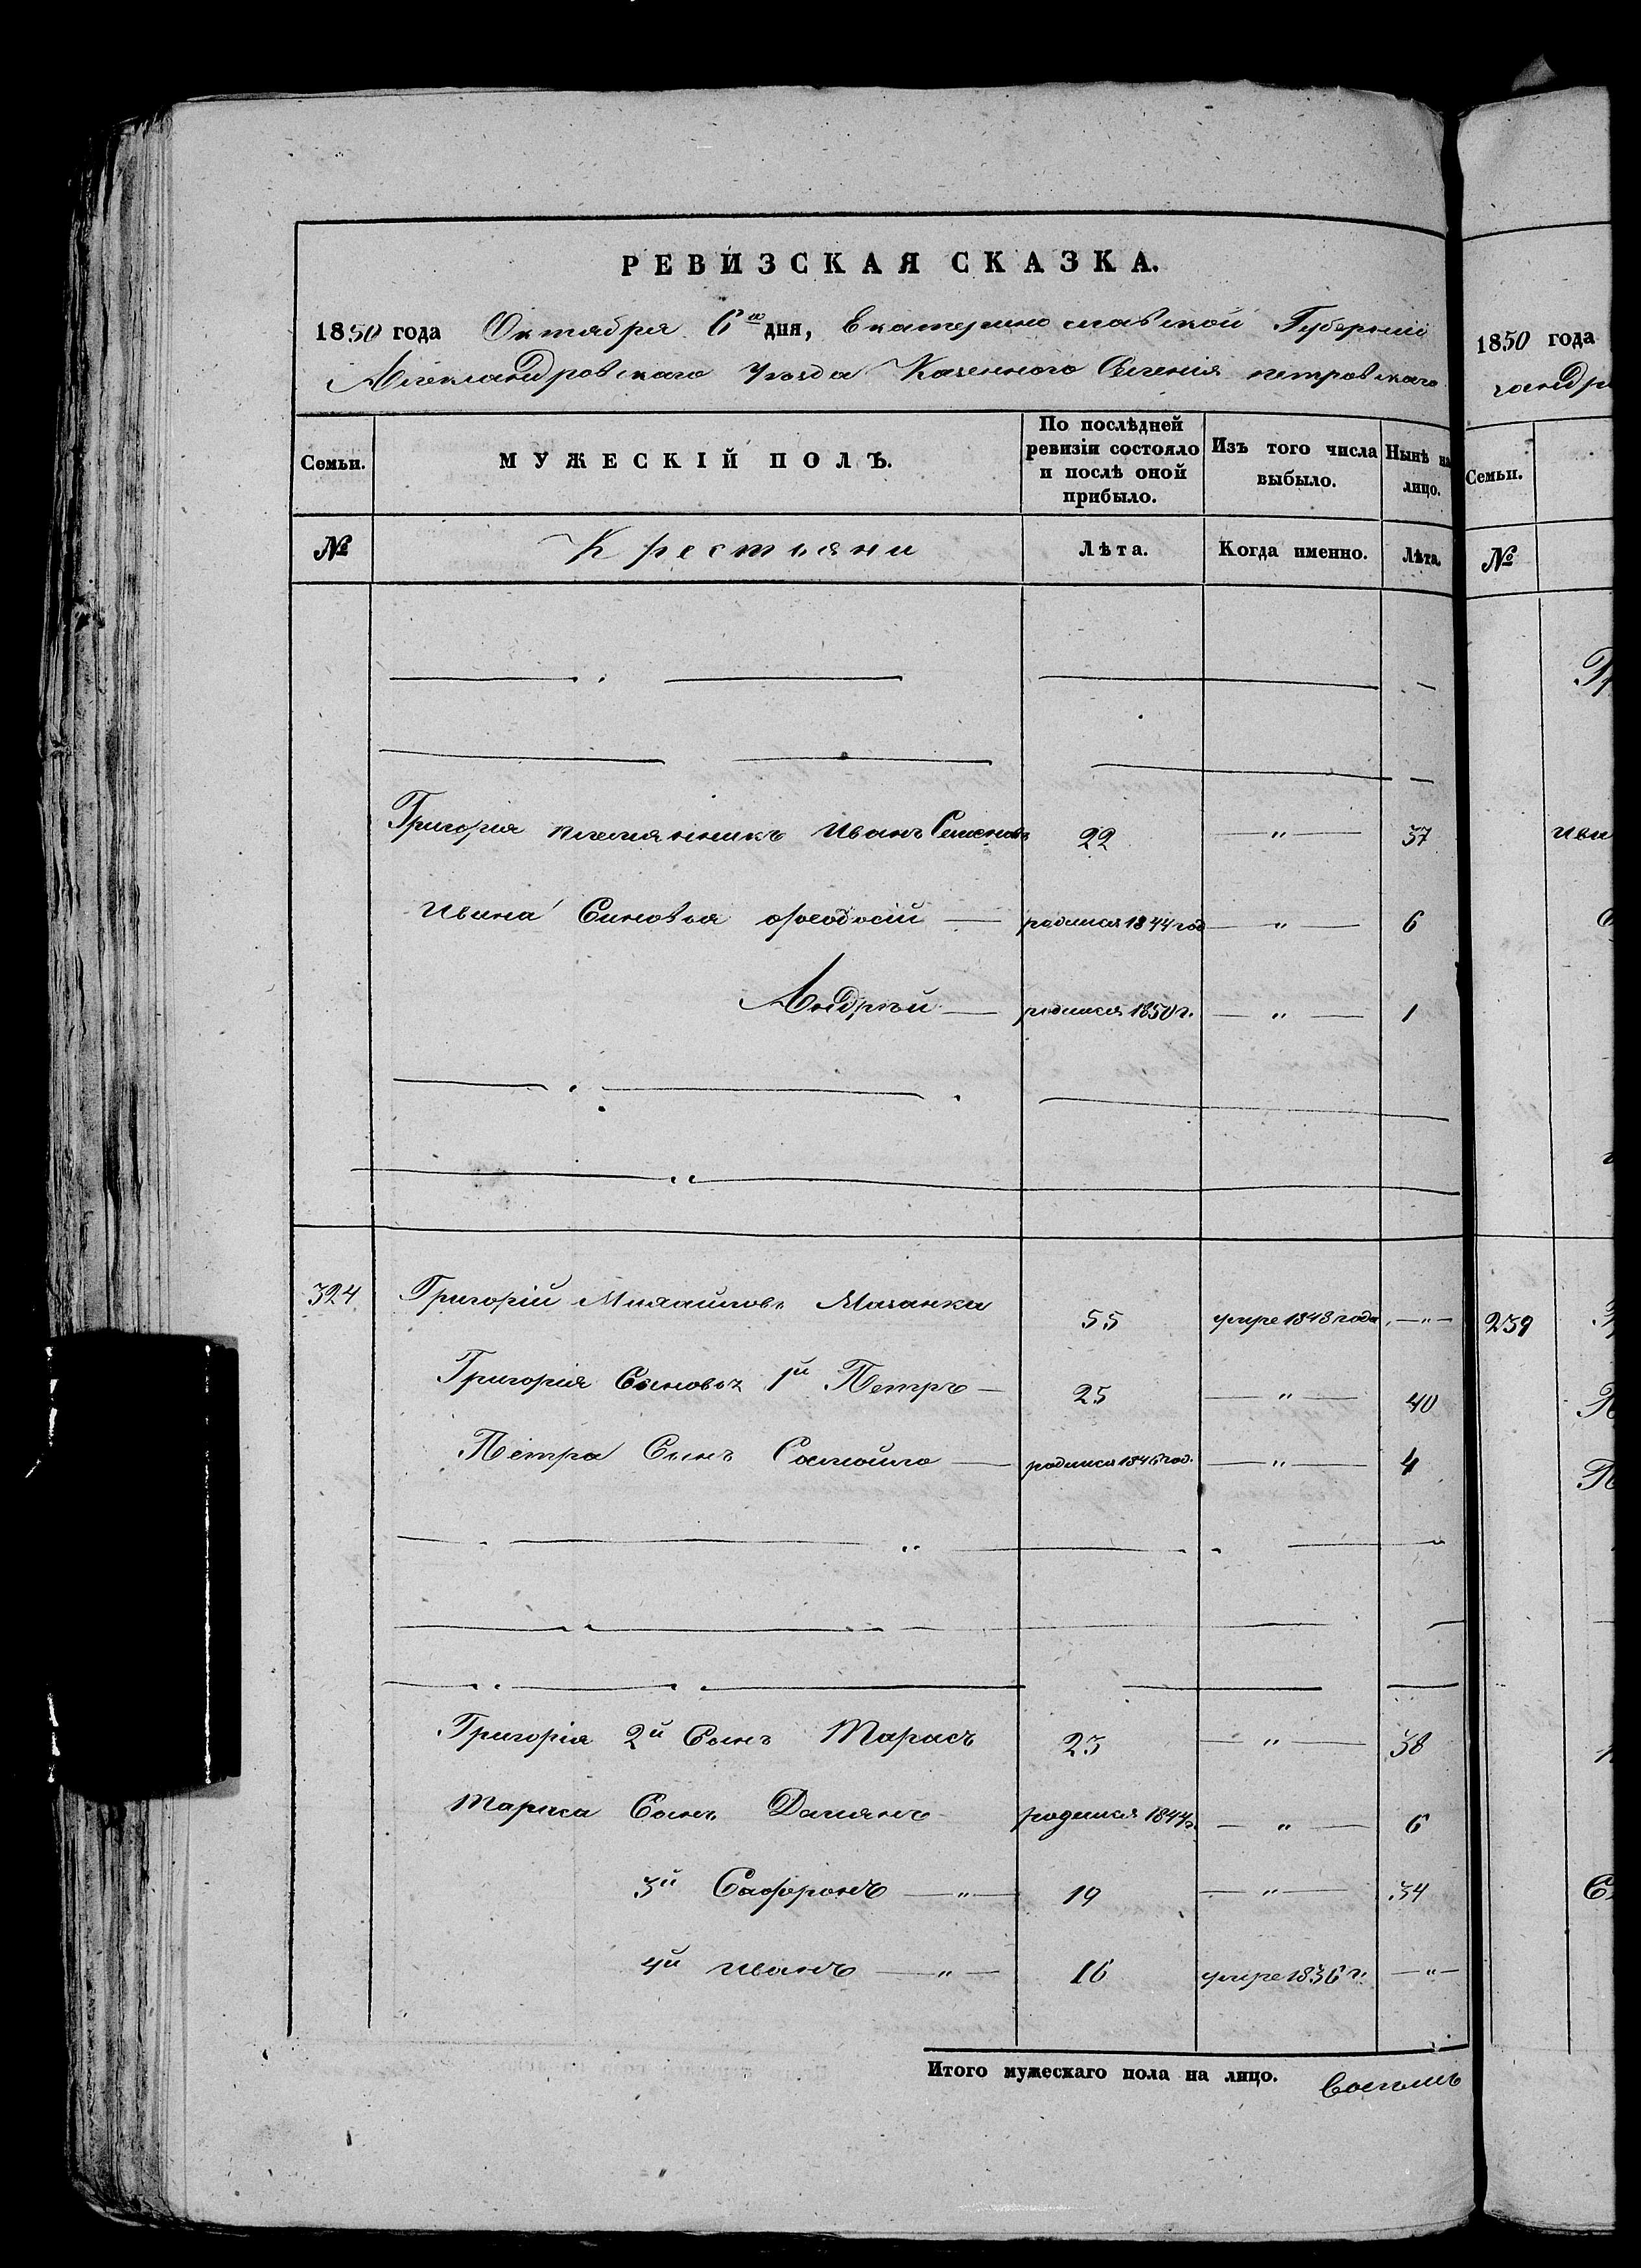 РЕВИЗСКАЯ СКАЗКА.
1850 года Октября 6го дня, Екатеринославской Губернии
Александровскаго уезда Казенного Селения петровскаго
Семьи. МУЖЕСКІЙ ПОЛЪ. По послѣдней ревизіи состояло и послѣ оной прибыло. Изъ того числа выбыло. Нынѣ на лицо.
№ Крестьяни Лѣта. Когда именно. Лѣта.
Григорія племянникъ Иванъ Семеновъ 22 — " — 37
Ивана Синовья Феодосій — родился 1844 год — " — 6
Андрѣй — родился 1850 г. — " — 1
324 Григорій Михайловъ 55 умре 1848 года — " —
Григорія Сыновьz 1й Петръ — 25 — " — 40
Петра Сынъ Самойло — родился 1846 год. — " — 4
Григорія 2й Сынъ Тарасъ 23 — " — 38
Сынъ Дамянъ родился 1844 г. — " — 6
3й Сафронъ — " — 19 — " — 34
4й Иванъ — " — 16 умре 1836 г. — " —
Итого мужескаго пола на лицо. Восемь
1850 года
Семьи.
№
239